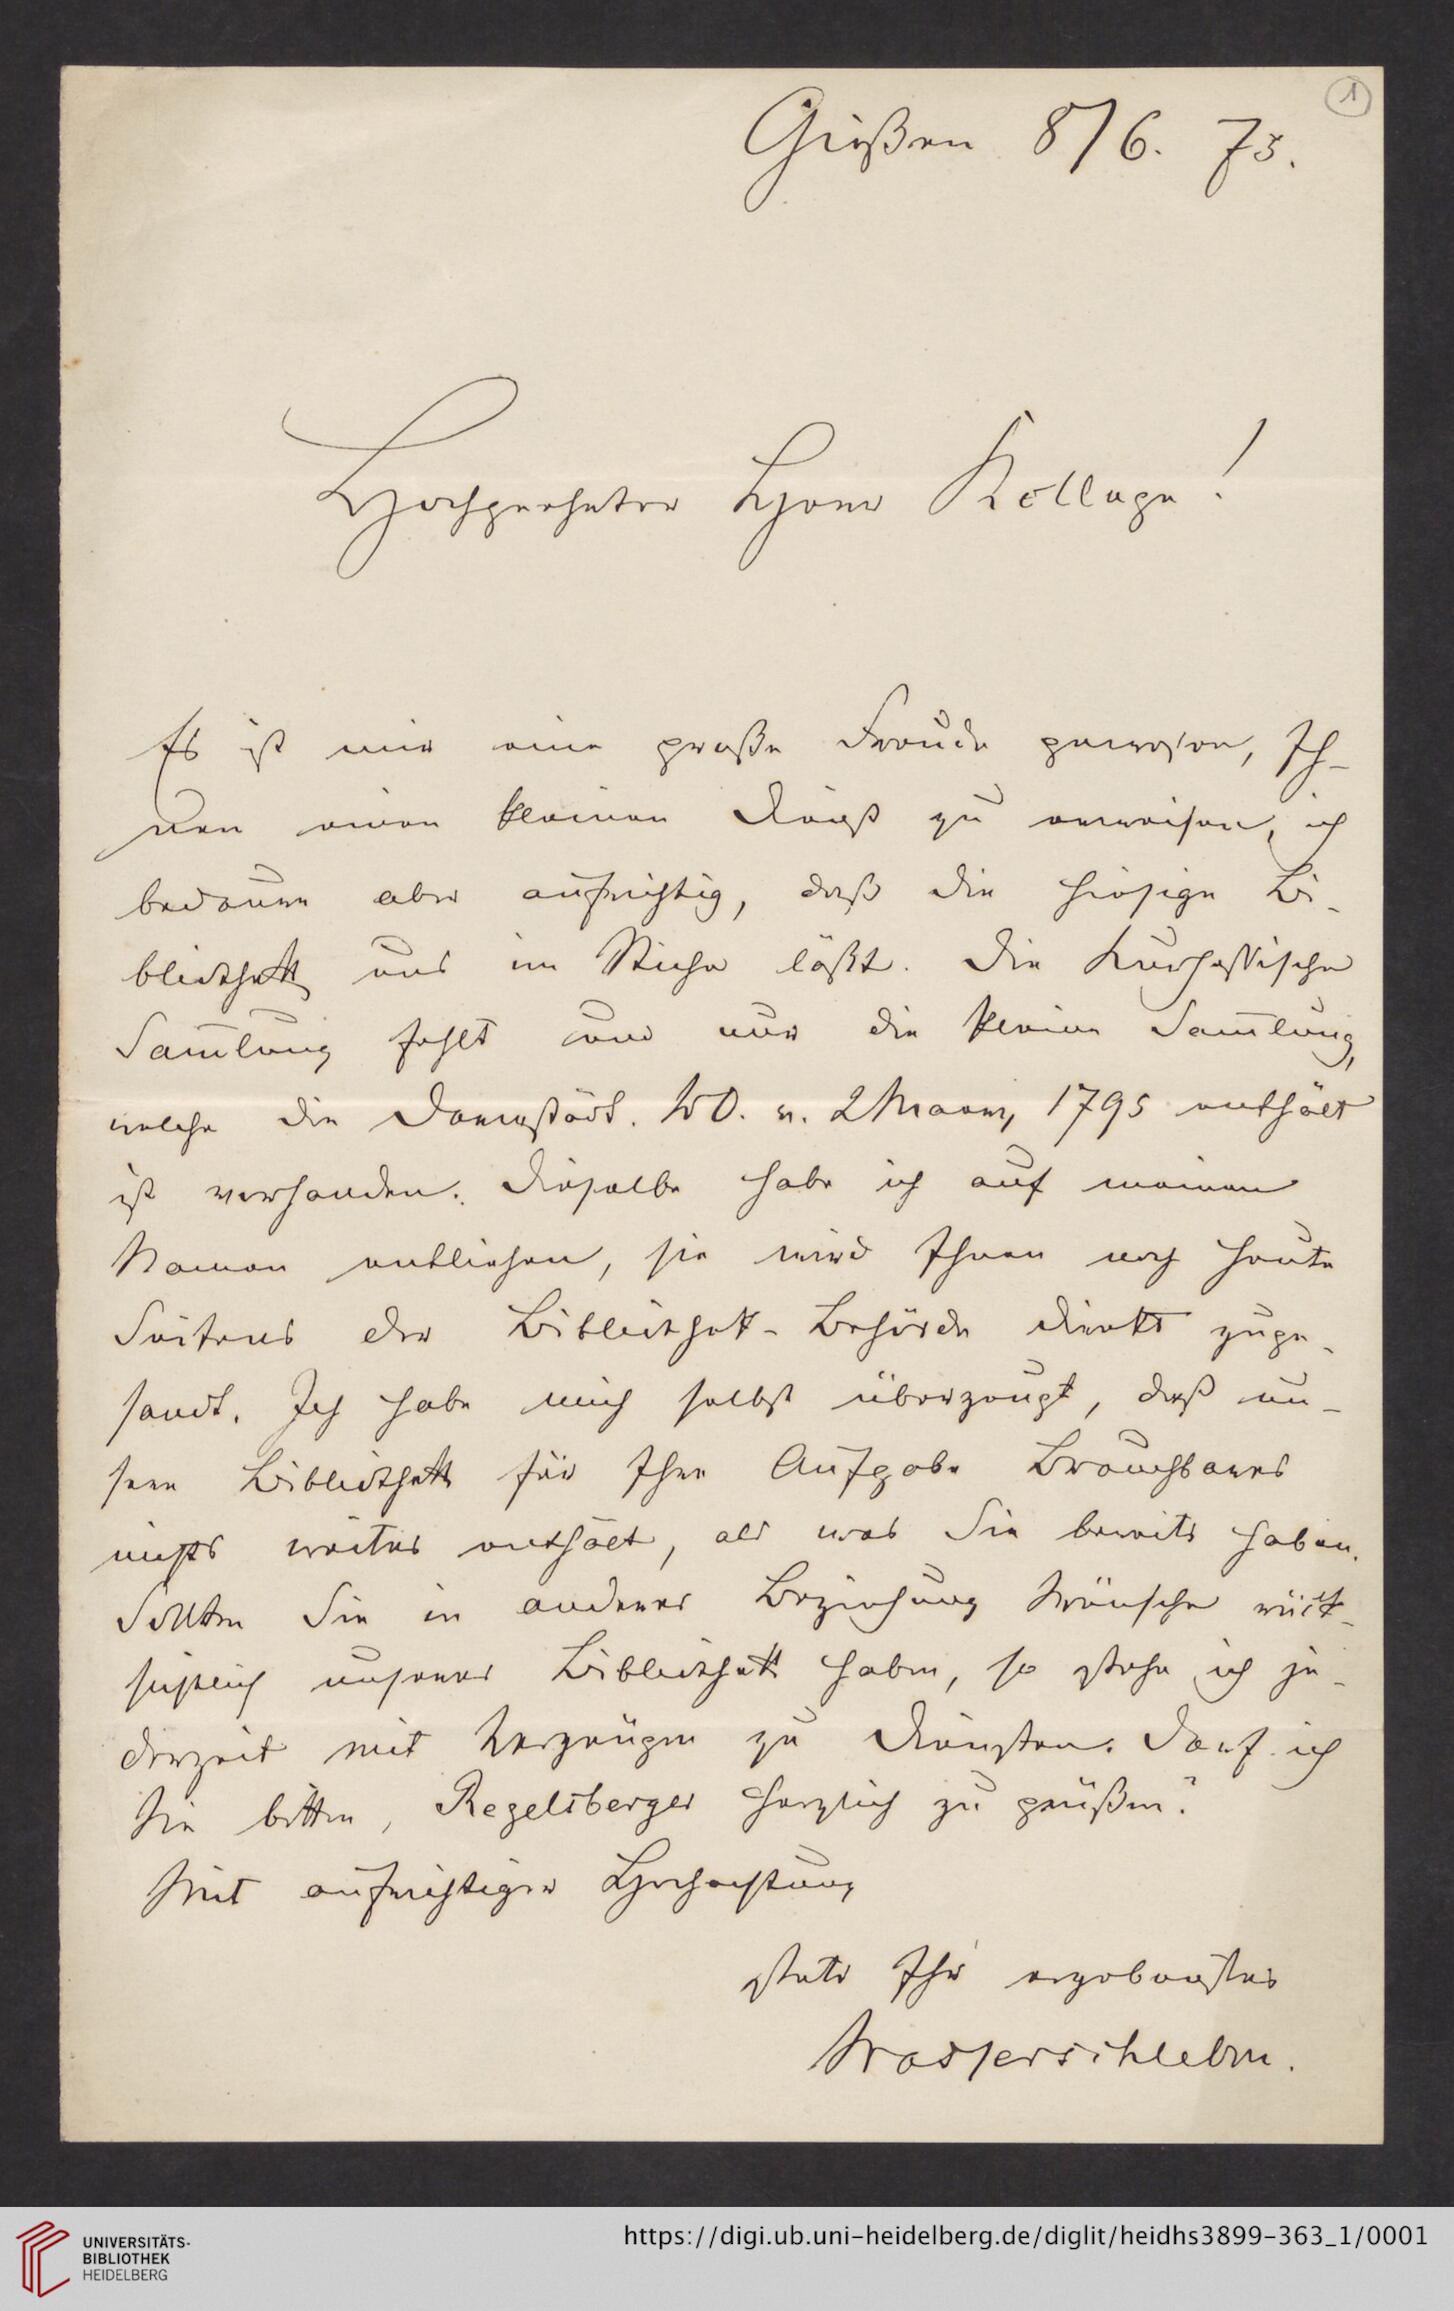 1
Gießen 8/6. 73.
Hochgeehrter Herr Kollege!
Es ist mir eine große Freude gewesen, Ih-
nen einen kleinen Dienst zu erweisen, ich
bedaure aber aufrichtig, daß die hiesige Bi-
bliothek uns im Stiche läßt. Die Kurhessische
Sam̄lung fehlt und nur die kleine Sam̄lung,
welche die Darmstädt. WO. v. 1795 enthält
ist vorhanden. Dieselbe habe ich auf meinen
Namen entliehen, sie wird Ihnen noch heute
Seitens der Bibliothek-Behörde direkt zuge-
sandt. Ich habe mich selbst überzeugt, daß un-
sere Bibliothek für Ihre Aufgabe Brauchbares
nichts weiter enthält, als was Sie bereits haben.
Sollten Sie in anderer Beziehung Wünsche rück-
sichtlich unserer Bibliothek haben, so stehe ich je-
derzeit mit Vergnügen zu Diensten. Darf ich
Sie bitten, Regelsberger herzlich zu grüßen?
Mit aufrichtiger Hochachtung
stets Ihr ergebenster
Wasserschleben.
UNIVERSITÄTS-
BIBLIOTHEK
HEIDELBERG
https://digi.ub.uni-heidelberg.de/diglit/heidhs3899-363_1/0001